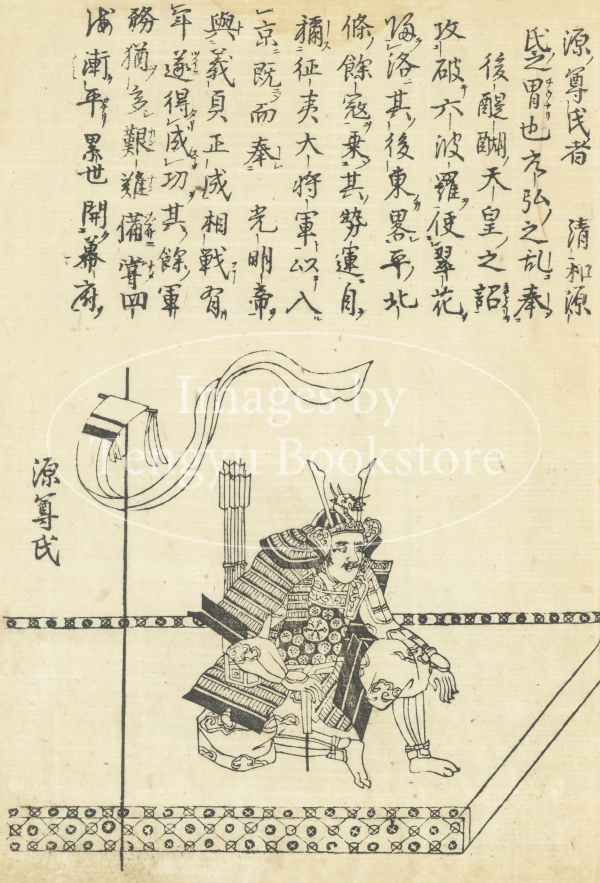 源ノ尊氏者 清和源
氏之冑也元弘之乱奉
後醍醐天皇之詔
攻破六波羅使翠花
帰洛其後東畧平北
條餘寇乗其勢運自
稱征夷大将軍以入
京既而奉 光明帝
與義貞正成相戦有
年遂得成功其餘軍
務猶多艱難備嘗四
海漸平累世開幕府
源尊氏
Images by
Tengyu Bookstore